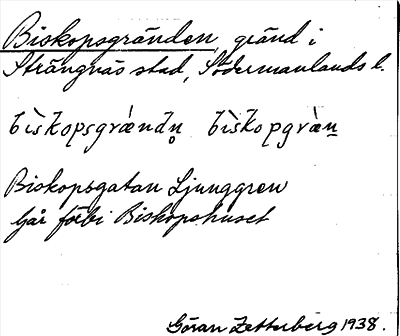 Biskopsgränden, gränd i
Strängnäs stad, Södermanlands l.
bìskopsgrændn̥ bìskopgræ̀n
Biskopsgatan Ljunggren
Går förbi Biskopshuset
Göran Zetterberg 1938.